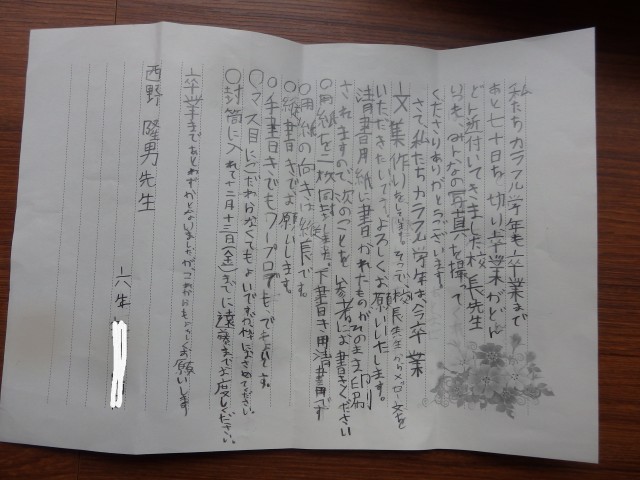 私たちカラフル学年も卒業まで
あと七十日を切り卒業がどん
どん近付いてきました校長先生
いつも、みんなの写真を撮って
くださりありがとうございます
さて、私たちカラフル学年は、今卒業
文集作りをしています。そこで、校長先生からメッセージ文を
いただきたいです。よろしくお願いいたします。
清書用紙に書かれたものがそのまま印刷
されますので、次のことを参考にお書きください
○用紙を二枚同封しました。下書き用清書用です
○用紙の向きは縦長です。
○縦書きでお願いします。
○手書きでもワープロでもでもよいです。
○マス目にこだわらなくてもよいですが枠におさめてください
○封筒に入れて十二月十三日(金)までに遠藤まで渡しください。
卒業まであとわずかとなりましたが、これからもよろしくお願いします
六年
西野 隆男先生